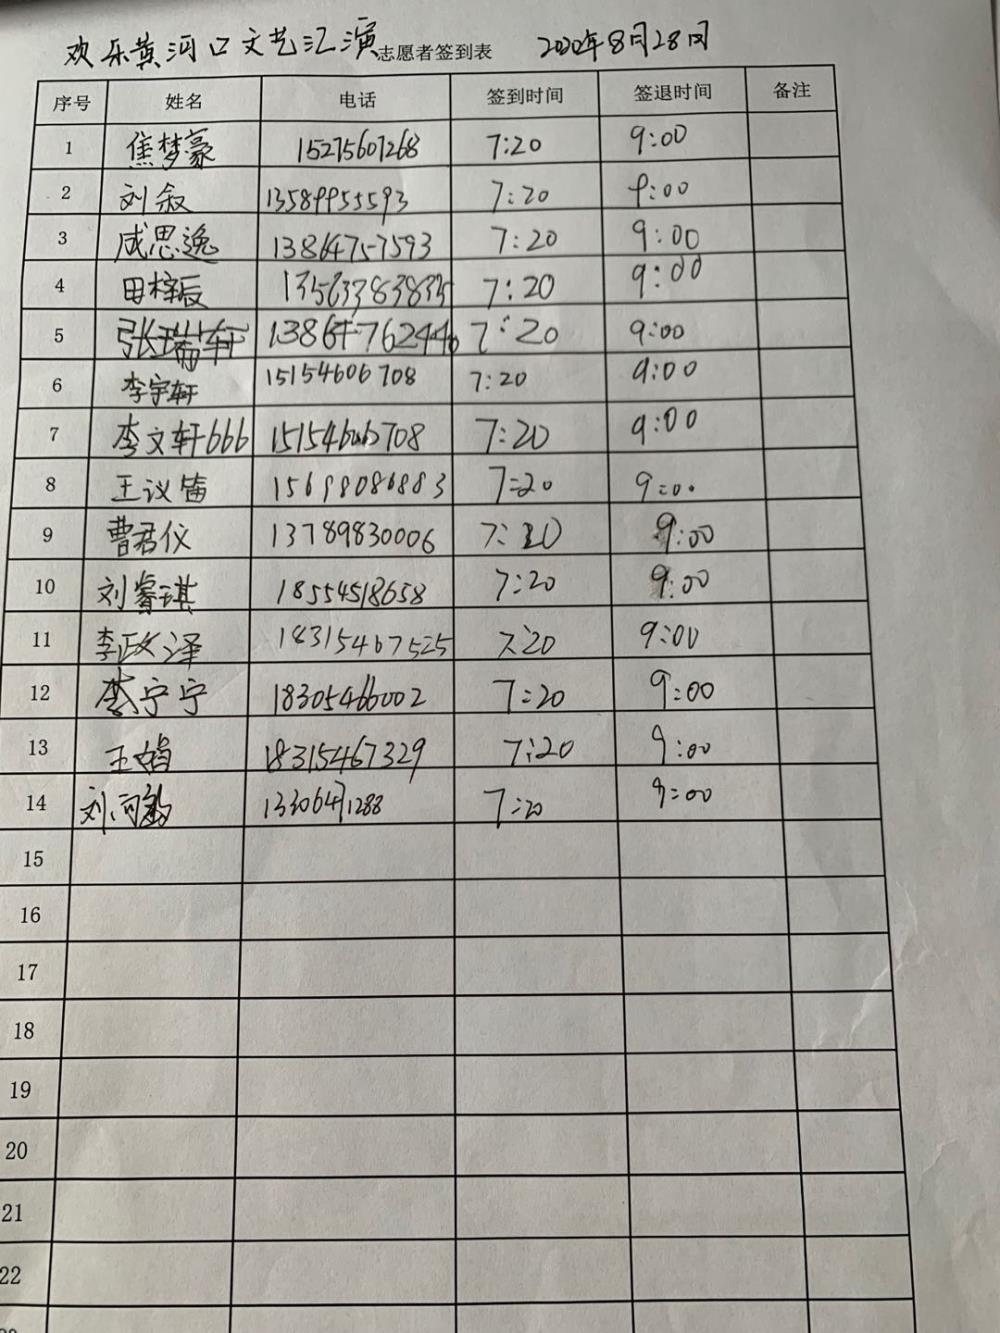 欢乐黄河口文艺汇演志愿者签到表 2020年8月28日
序号 姓名 电话 签到时间 签退时间 备注
1 焦梦豪 15275607268 7:20 9:00
2 刘叙 13589955593 7:20 9:00
3 成思逸 13864757593 7:20 9:00
4 田梓辰 7:20 9:00
5 张瑞轩 13864762446 7:20 9:00
6 李宇轩 15154606708 7:20 9:00
7 李文轩666 15154606708 7:20 9:00
8 王议笛 15698086883 7:20 9:00
9 曹君仪 13789830006 7:20 9:00
10 刘睿琪 18554518658 7:20 9:00
11 李政泽 18315467525 7:20 9:00
12 李宁宁 18305466002 7:20 9:00
13 王娟 18315467329 7:20 9:00
14 刘 13306471288 7:20 9:00
15
16
17
18
19
20
21
22